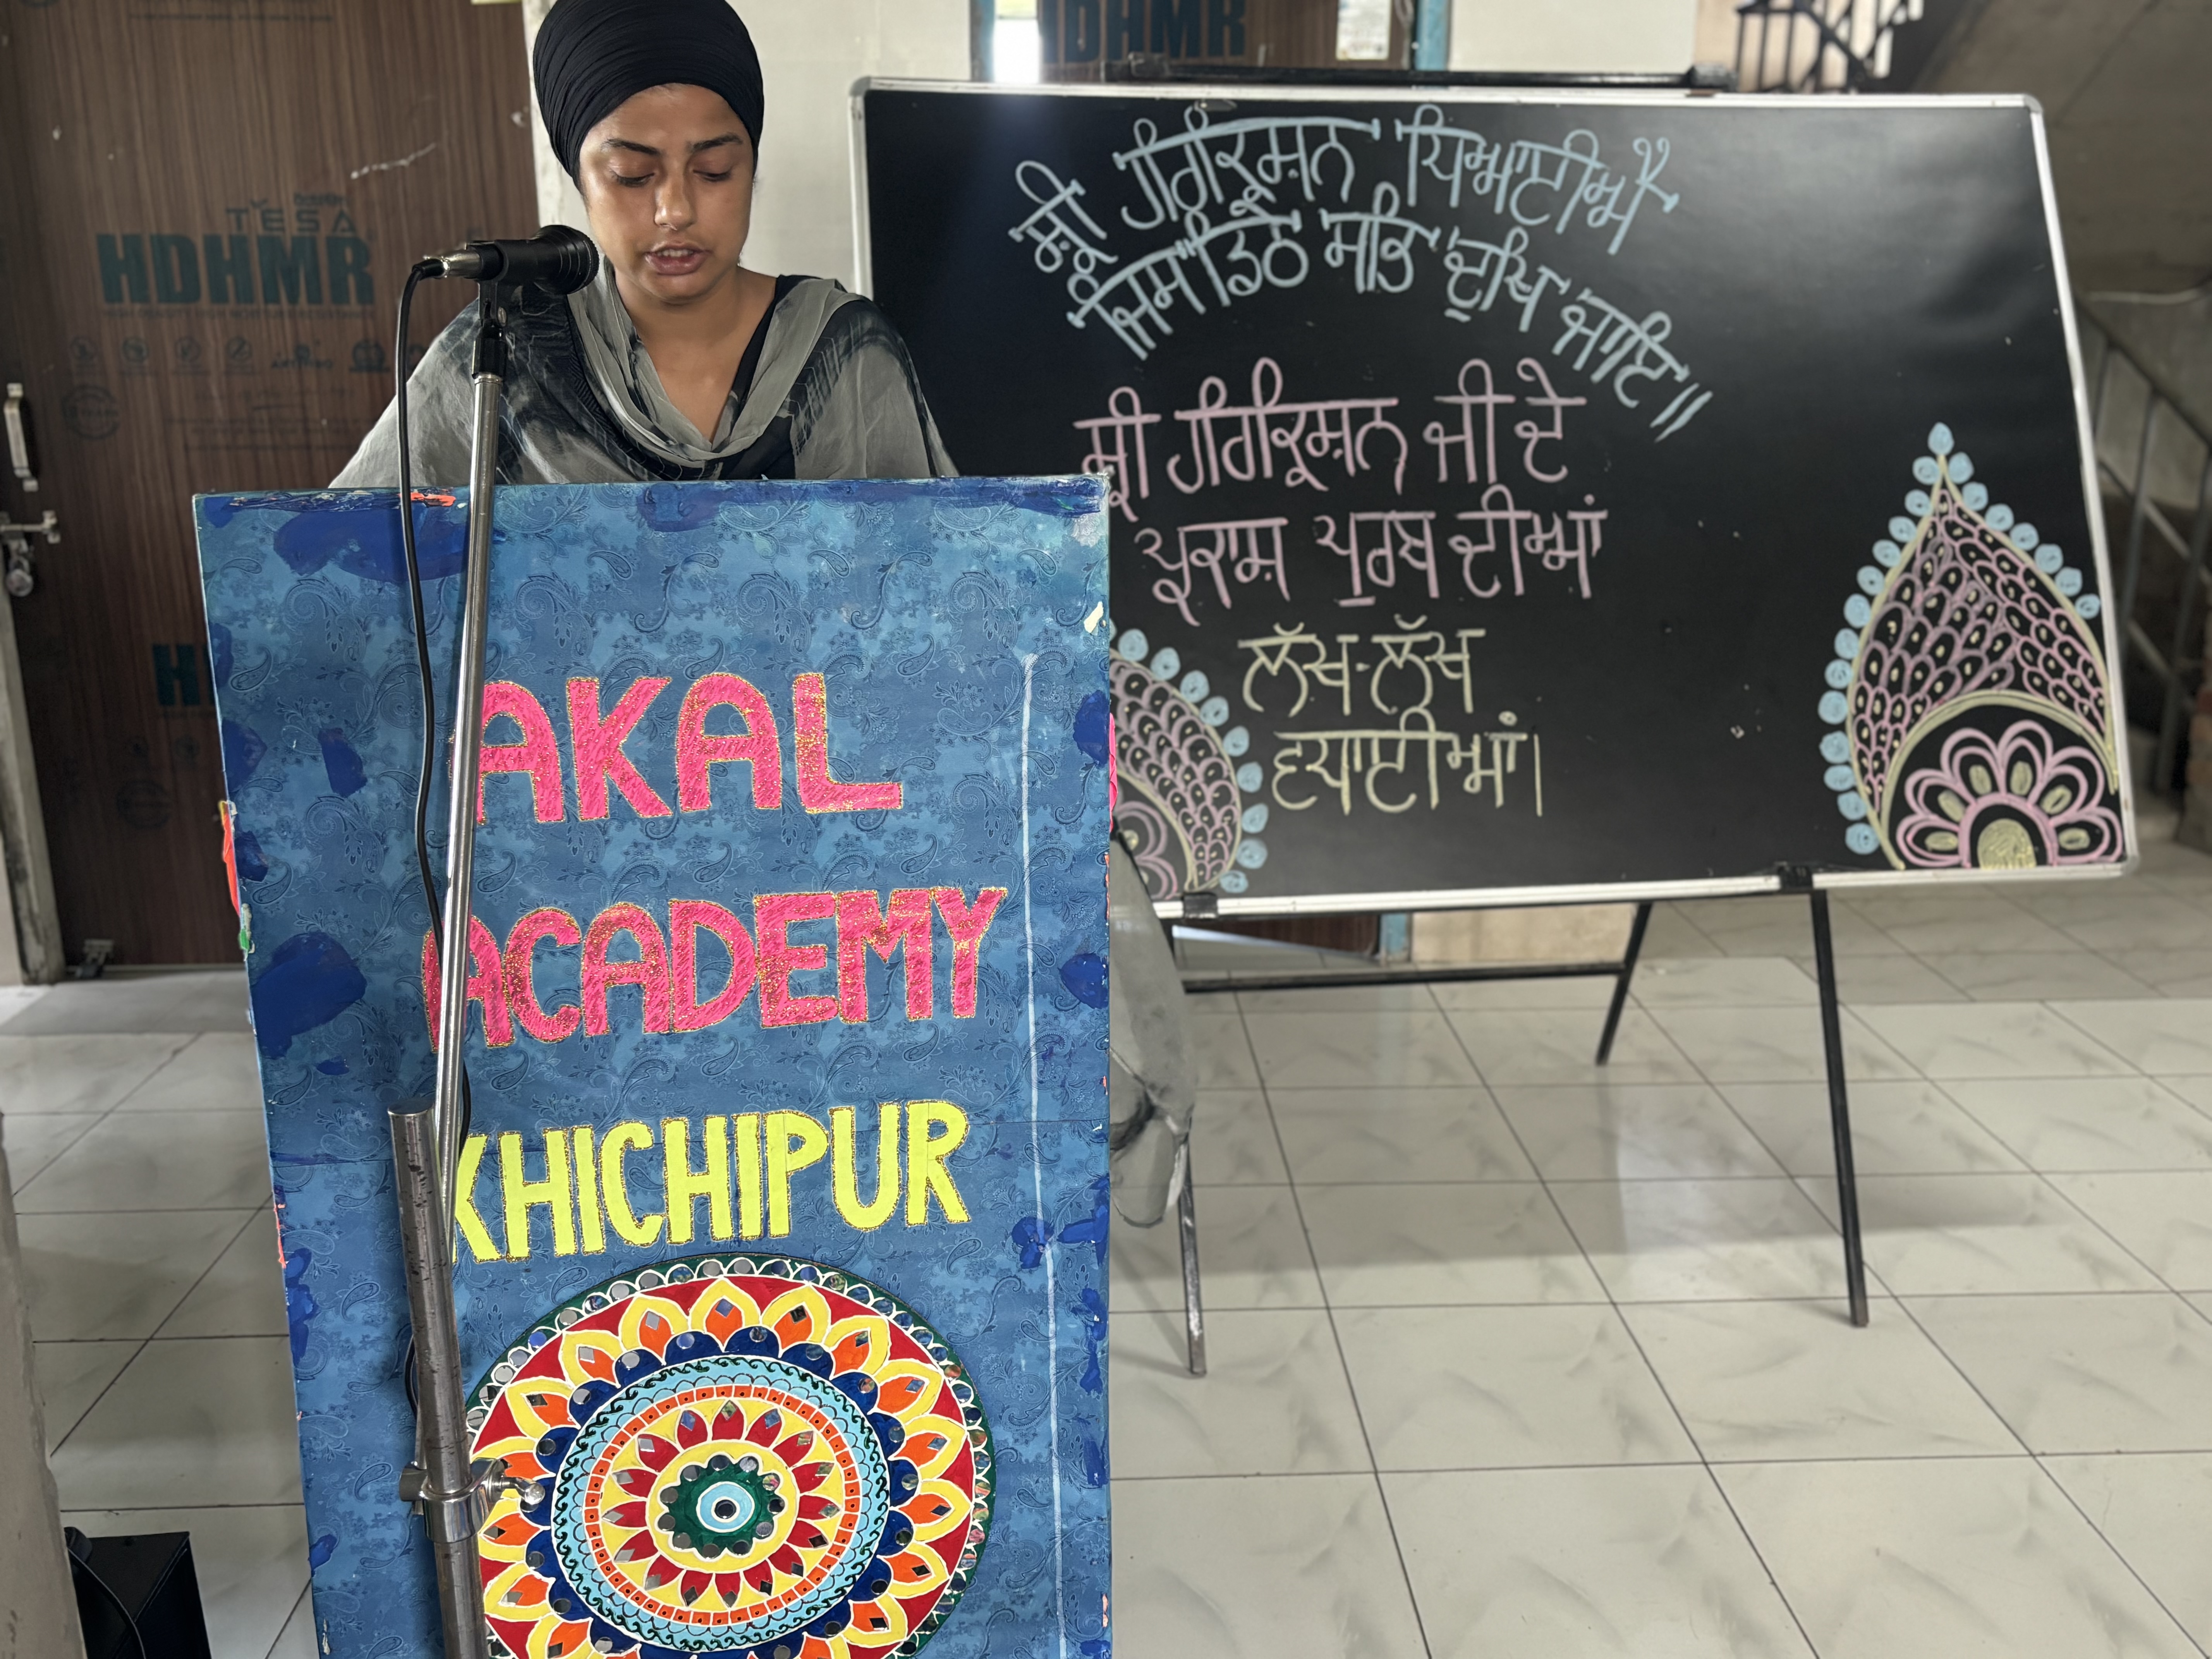 TESA
HDHMR
HDHMR
AKAL
ACADEMY
KHICHIPUR
ਸ੍ਰੀ ਹਰਿਕ੍ਰਿਸ਼ਨ ਧਿਆਈਐ
ਜਿਸ ਡਿਠੇ ਸਭਿ ਦੁਖਿ ਜਾਇ॥
ਸ੍ਰੀ ਹਰਿਕ੍ਰਿਸ਼ਨ ਜੀ ਦੇ
ਪ੍ਰਕਾਸ਼ ਪੁਰਬ ਦੀਆਂ
ਲੱਖ-ਲੱਖ
ਵਧਾਈਆਂ।